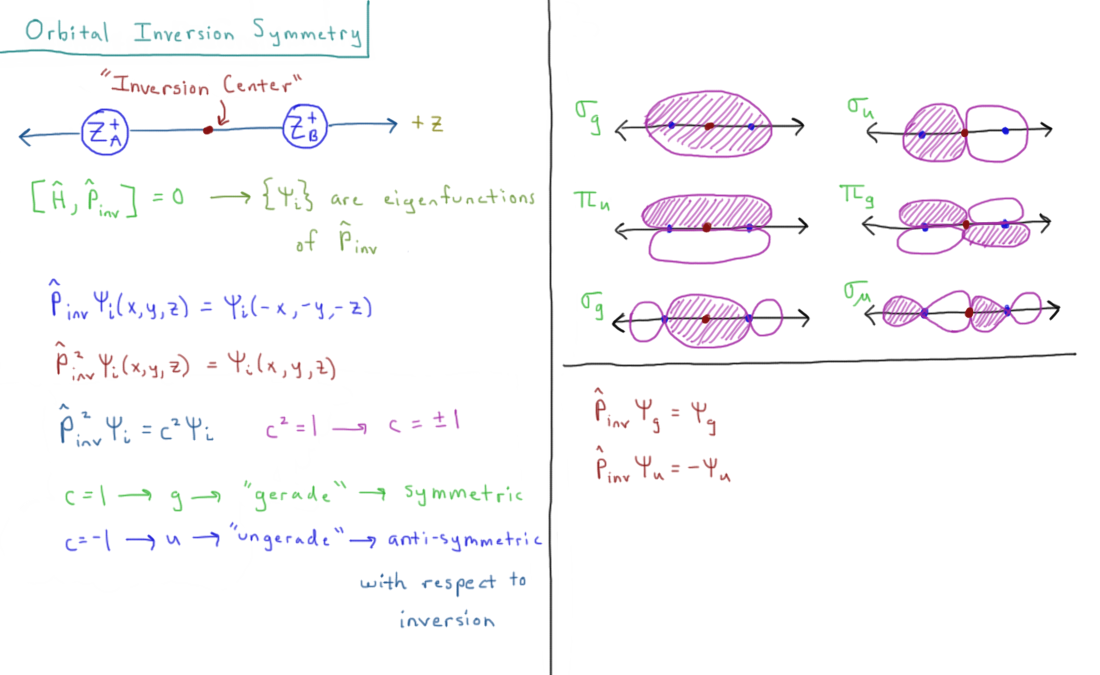 Orbital Inversion Symmetry
"Inversion Center"
Z_A^+ Z_B^+ +z
[Ĥ, P̂_inv] = 0 → {Ψ_i} are eigenfunctions
of P̂_inv
P̂_inv Ψ_i(x,y,z) = Ψ_i(-x,-y,-z)
P̂²_inv Ψ_i(x,y,z) = Ψ_i(x,y,z)
P̂²_inv Ψ_i = c²Ψ_i c²=1 → c = ±1
c=1 → g → "gerade" → symmetric
c=-1 → u → "ungerade" → anti-symmetric
with respect to
inversion
σ_g σ_u
π_u π_g
σ_g σ_u
P̂_inv Ψ_g = Ψ_g
P̂_inv Ψ_u = -Ψ_u